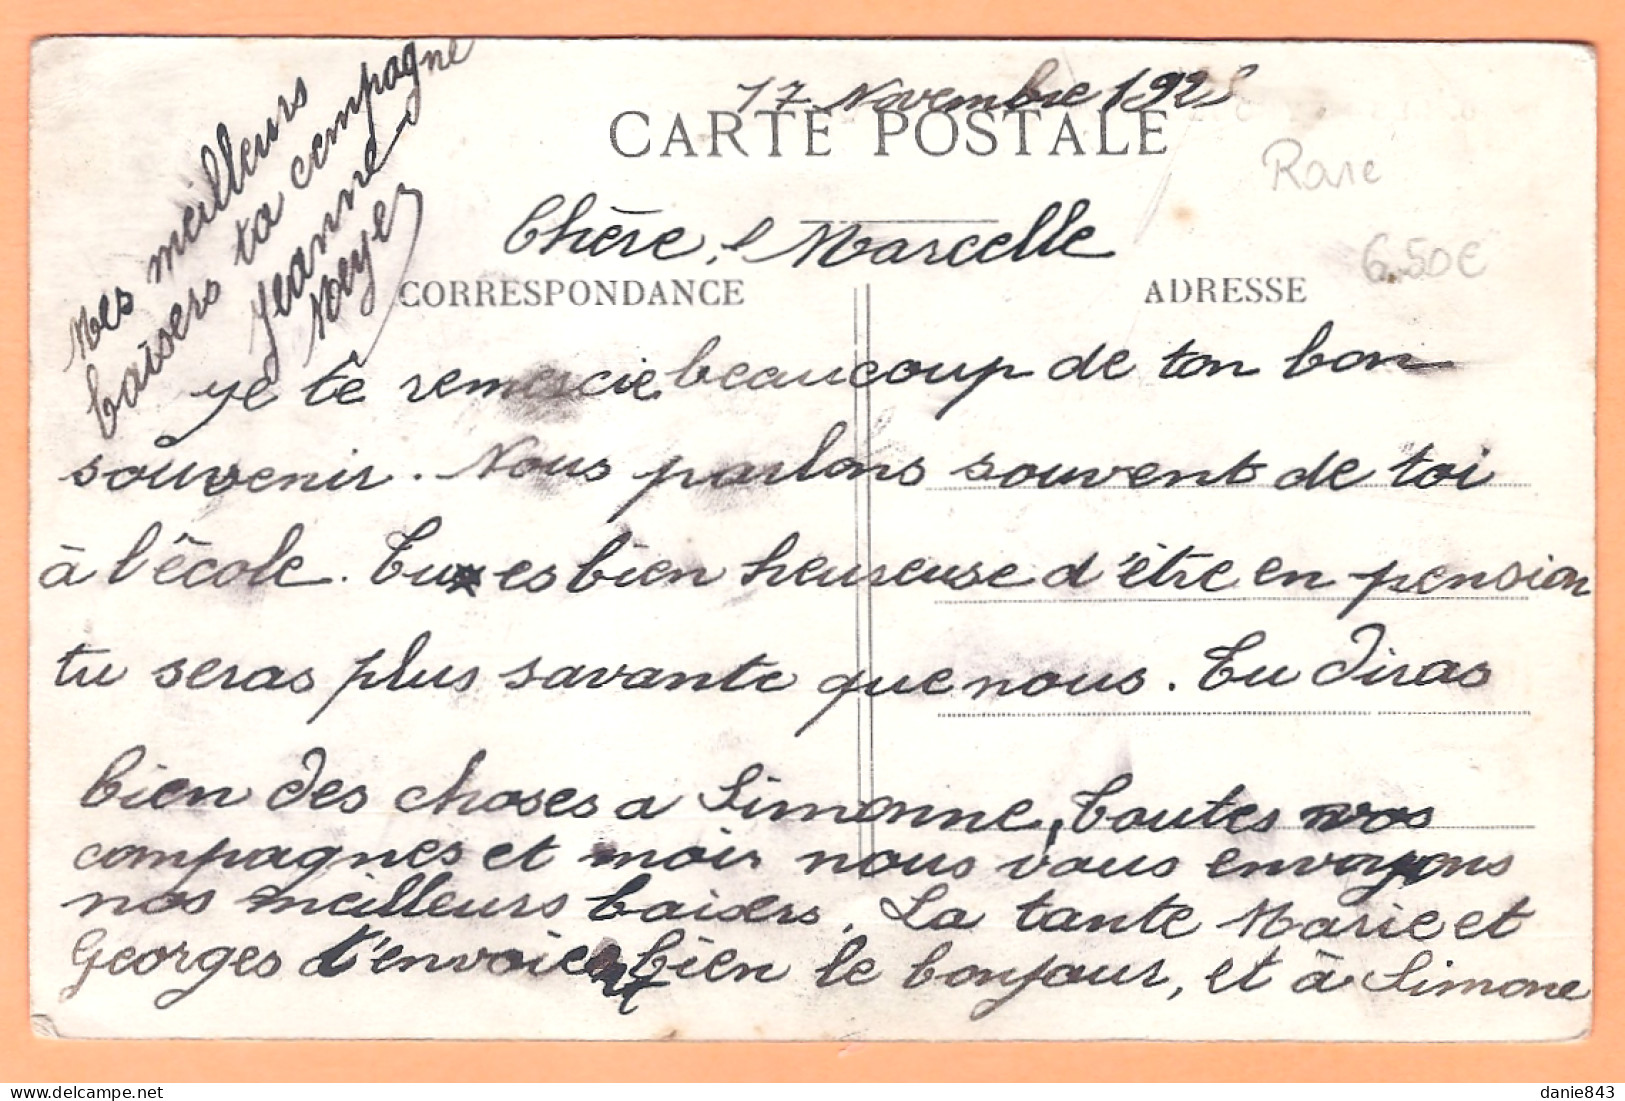 17 Novembre 192
CARTE POSTALE
Rare
6.50€
Chère Marcelle
CORRESPONDANCE
ADRESSE
je te remercie beaucoup de ton bon
souvenir. Nous parlons souvent de toi
à l'école. Tu es bien heureuse d'être en pension
tu seras plus savante que nous. Tu diras
bien des choses a Simonne, toutes nos
compagnes et moi nous vous envoyons
nos meilleurs baisers. La tante Marie et
Georges t'envoient bien le bonjour, et à Simone
Mes meilleurs
baisers ta compagne
Jeanne
Noyel
danie843